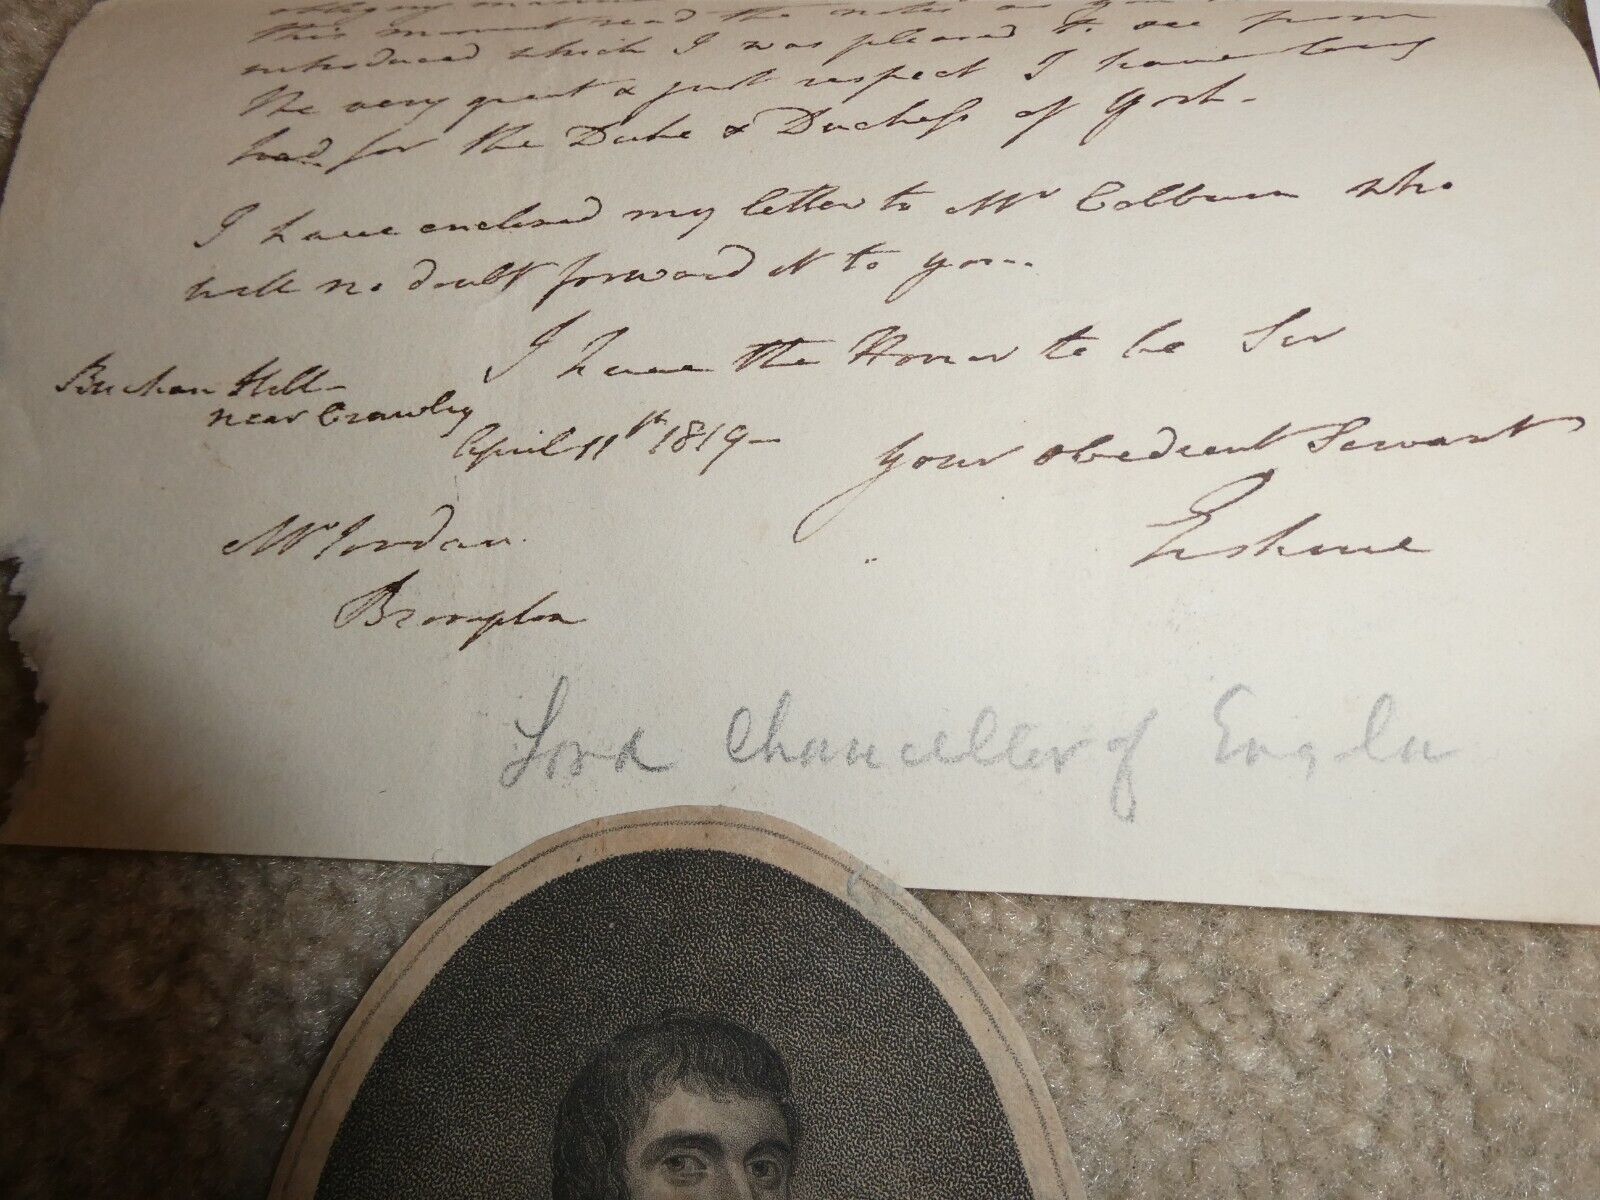 this moment read the notes as you
introduced which I was pleased to see from
the very great & just respect I have long
had for the Duke & Duchess of York-
I have enclosed my letter to Mr Colburn who
will no doubt forward it to you.
I have the Honor to be Sir
Buchan Hill-
near Crawley
April 11th 1819-
your obedient Servant
Erskine
Mr Jordan.
Brompton
Lord Chanceller of Engla